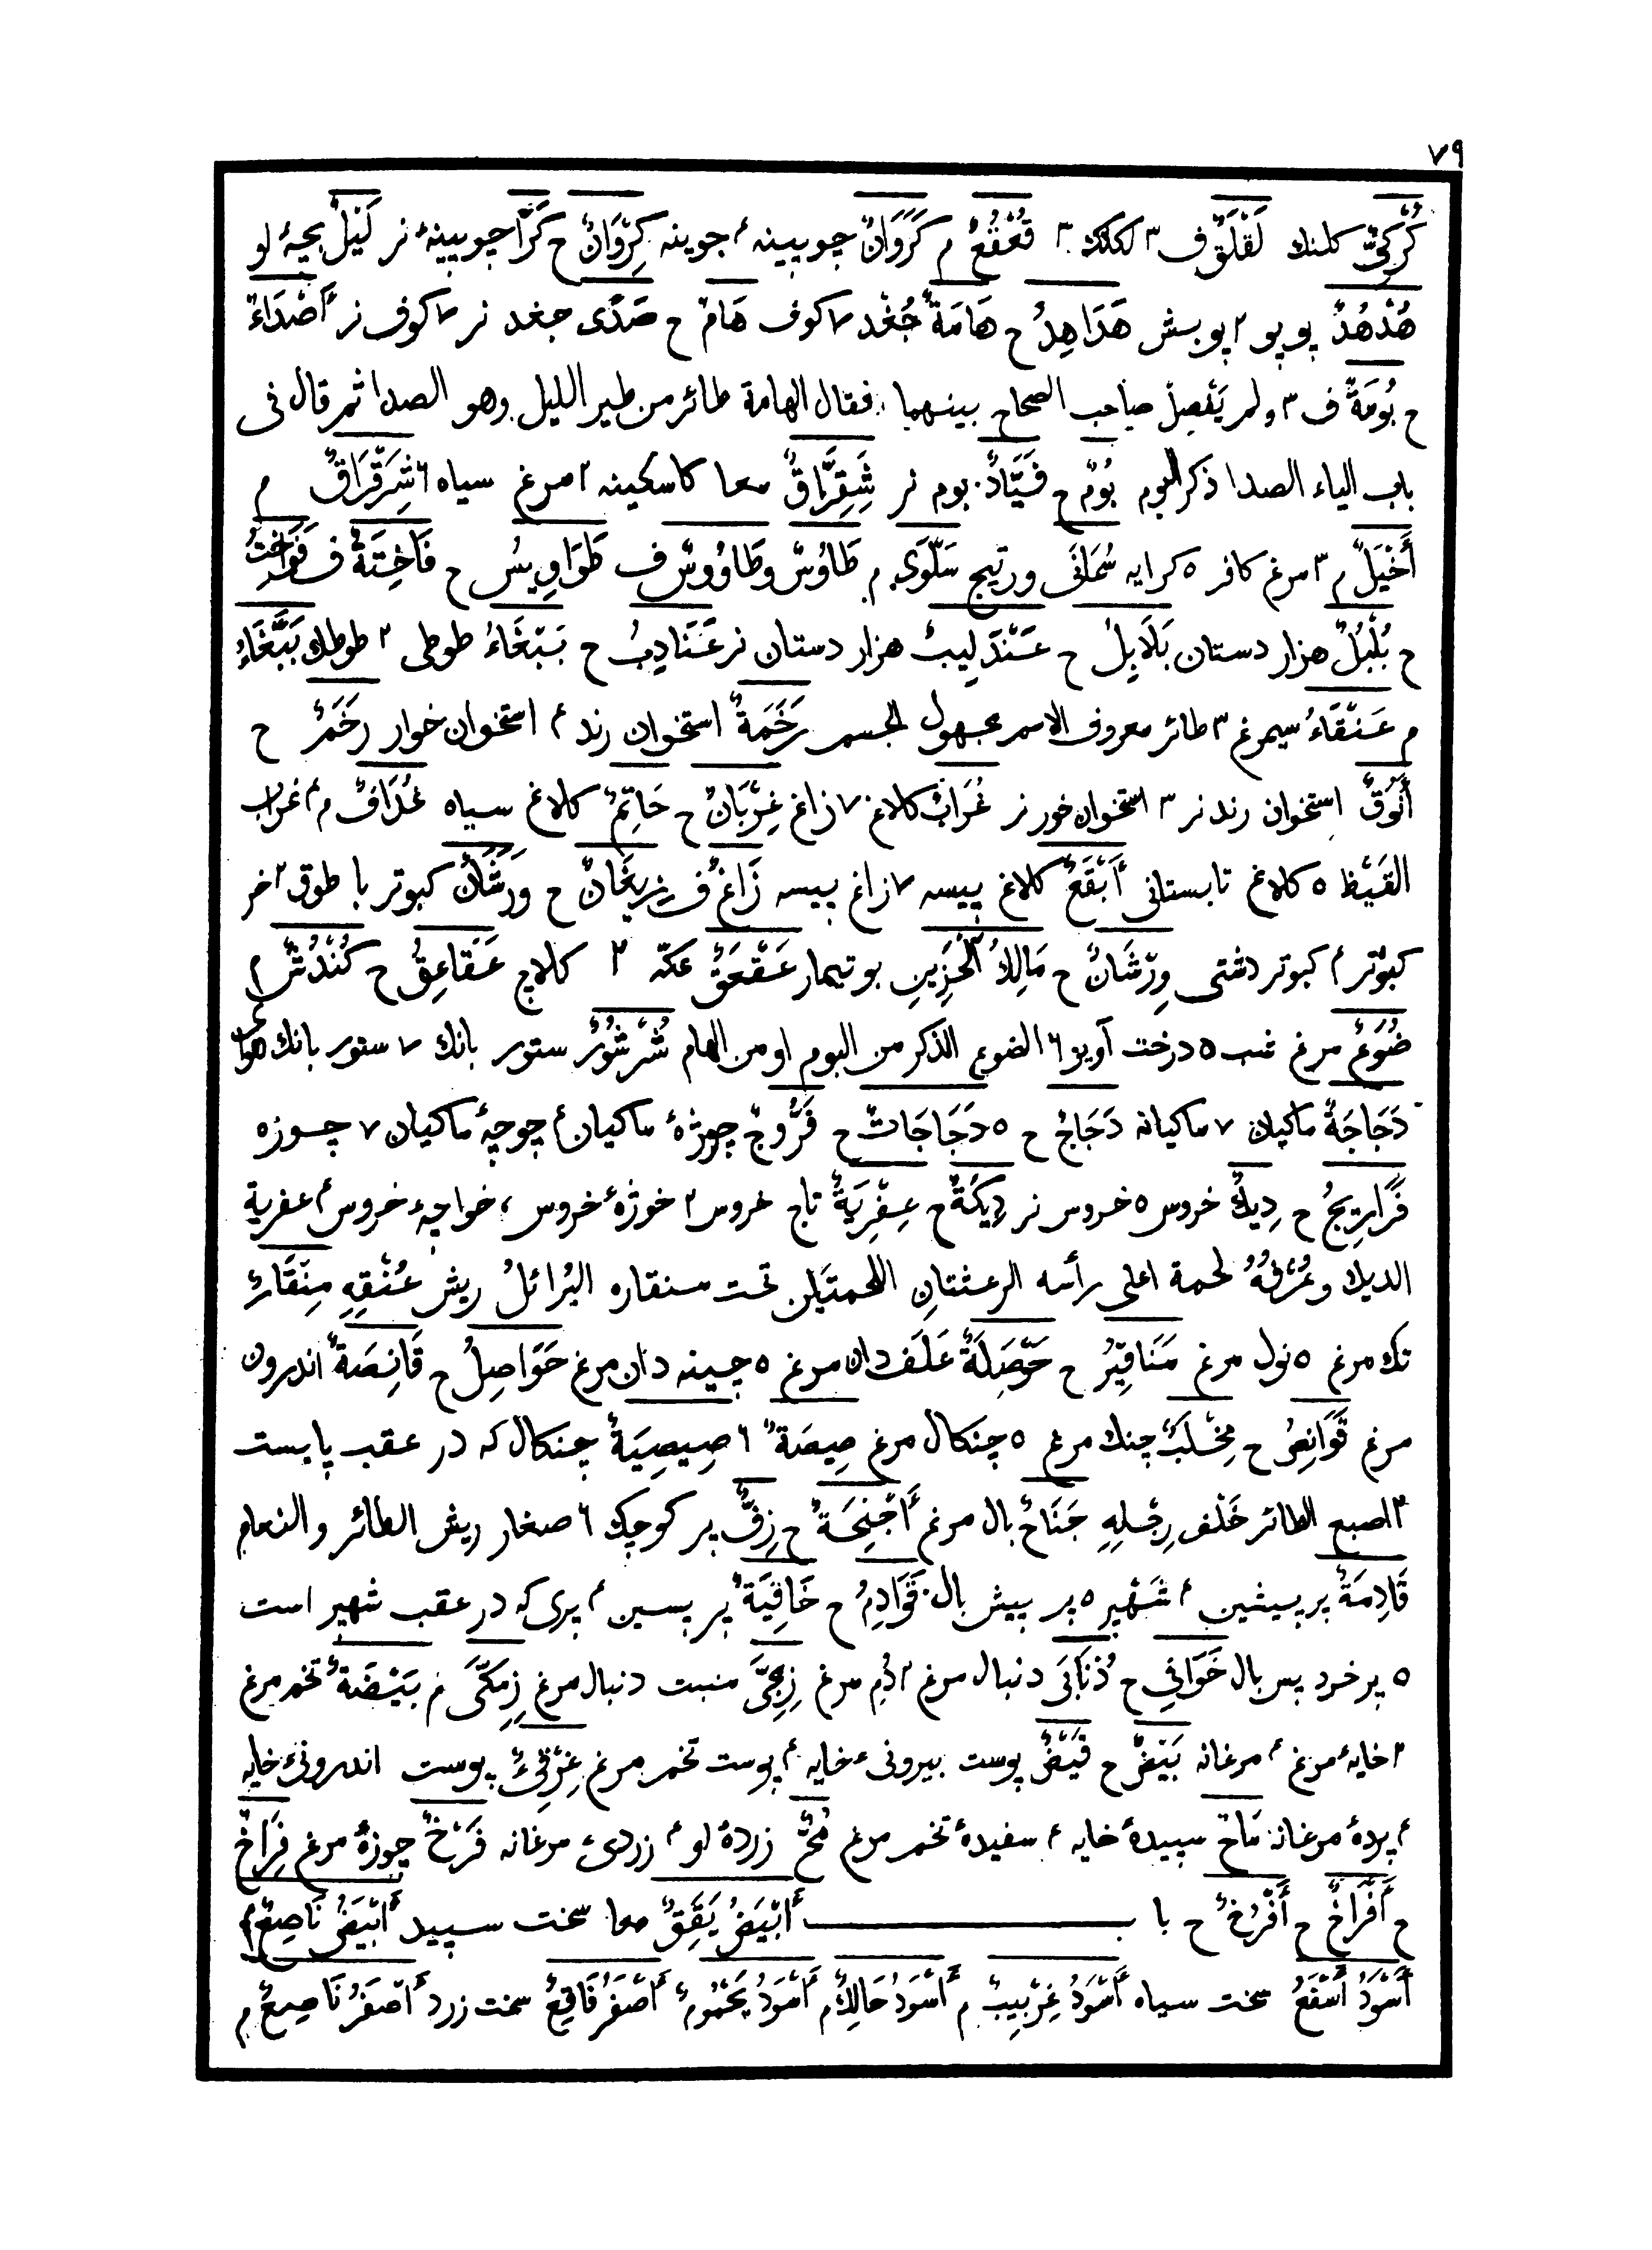 ٧٩
كُرْكِيٌّ كلنك لَقْلَقٌ ف ٣ لكلك ٣ قُعْقُعٌ م كَرَوَانٌ چوبينه ۴ جوينه كِرْوَانٌ ح كَرَا چوبينهٔ نر لَيْلٌ بچهٔ او
هُدْهُدٌ پوپو ٢ پوبش هَدَاهِدُ ح هَامَةٌ جُغْد ٧ كوف هَامٌ ح صَدًى جغد نر ٧ كوف نر أَصْدَاءٌ
ح بُومَةٌ ف ٣ ولم يَفْصِلْ صاحب الصحاح بينهما فقال الهامة طائر من طير الليل وهو الصدا ثم قال فى
باب الياء الصدا ذكر البوم بُومٌ ح فَيَّادٌ بوم نر شَقِرَّاقٌ معا كاسكينه ٢ مرغ سياه ٦ شِرَقْرَاقٌ م
أَخْيَلُ م ٣ مرغ كافر ٥ كرايه سُمَانَى ورتيج سَلْوَى م طَاؤُسٌ وطَاوُوسٌ ف طَوَاوِيسُ ح فَاخِتَةٌ ف فَوَاخِتُ
ح بُلْبُلٌ هزار دستان بَلَابِلُ ح عَنْدَلِيبٌ هزار دستان نر عَنَادِبُ ح بَبْغَاءُ طوطى ٢ طوطك بَبَّغَاءُ
م عَنْقَاءُ سيمرغ ٣ طائر معروف الاسم مجهول الجسم رَخَمَةٌ استخوان رند ۴ استخوان خوار رَخَمٌ ح
أَنُوقٌ استخوان رند نر ٣ استخوان خور نر غُرَابٌ كلاغ ٧ زاغ غِرْبَانٌ ح حَاتِمٌ كلاغ سياه غُدَافٌ م ۴ غراب
القَيْظ ٥ كلاغ تابستانى أَبْقَعُ كلاغ پيسه ٧ زاغ پيسه زَاغٌ ف زِيغَانٌ ح وَرَشَانٌ كبوتر با طوق ٢ خر
كبوتر ۴ كبوتر دشتى وِرْشَانٌ ح مَالِكُ الْحَزِينِ بوتيمار عَقْعَقٌ عكّه ٣ كلاچ عَقَاعِقُ ح كُنْدُشٌ م
ضُوَعٌ مرغ شب ٥ درخت آويز ٦ الضوع الذكر من البوم او من الهام شُرْشُورٌ ستور بانك ٧ ستور بانك هوا
دَجَاجَةٌ ماكيان ٧ ماكيانه دَجَاجٌ ح ٥ دَجَاجَاتٌ ح فَرُّوجٌ چوزهٔ ماكيان ۴ چوجهٔ ماكيان ٧ چوزه
فَرَارِيجُ ح دِيكٌ خروس ٥ خروس نر دِيَكَةٌ ح عِفْرِيَةٌ تاج خروس ٣ خوزهٔ خروس ، خواجهٔ خروس ۴ عفرية
الديك وعُرْفُهُ لحمة اعلى رأسه الرعشتانِ اللحمتان تحت منقاره البُرَائلُ ريش عُنْقِهِ مِنْقَارٌ
تك مرغ ٥ نول مرغ مَنَاقِيرُ ح حَوْصَلَةٌ عَلَف دان مرغ ٥ چينه دان مرغ حَوَاصِلُ ح قَانِصَةٌ اندرون
مرغ قَوَانِصُ ح مِخْلَبٌ چنك مرغ ٥ چنكال مرغ صِيصَةٌ ٦ صِيصِيَةٌ چنكال كه در عقب پايست
٣ اصبع الطائر خَلْف رِجْلِهِ جَنَاحٌ بال مرغ أَجْنِحَةٌ ح زِفٌّ پر كوچك ٦ صغار ريش الطائر والنعام
قَادِمَةٌ پر پيشين ۴ شَهْپر ٥ پر پيش بال قَوَادِمُ ح خَافِيَةٌ پر پسين ۴ پرى كه در عقب شهپر است
٥ پر خرد پس بال خَوَافِي ح ذُنَابَى دنبال مرغ ٢ دُم مرغ زِمِجَّى منبت دنبال مرغ زِمِكَّى م بَيْضَةٌ تخم مرغ
٢ خايهٔ مرغ ۴ مرغانه بَيْضٌ ح قَيْضٌ پوست بيرونئ خايه ۴ پوست تخم مرغ غِرْقِئٌ پوست اندرونئ خايه
۴ پردهٔ مرغانه مَاحٌ سپيدهٔ خايه ۴ سفيدهٔ تخم مرغ مُحٌّ زردهٔ او ۴ زردئ مرغانه فَرْخٌ چوزهٔ مرغ فِرَاخٌ
ح أَفْرَاخٌ ح أَفْرُخٌ ح با ب أَبْيَضُ يَقِقٌ معا سخت سپيد أَبْيَضُ نَاصِعٌ م
أَسْوَدُ أَسْفَعُ سخت سياه أَسْوَدُ غِرْبِيبٌ م أَسْوَدُ حَالِكٌ م أَسْوَدُ يَحْمُومٌ أَصْفَرُ فَاقِعٌ سخت زرد أَصْفَرُ نَاصِعٌ م